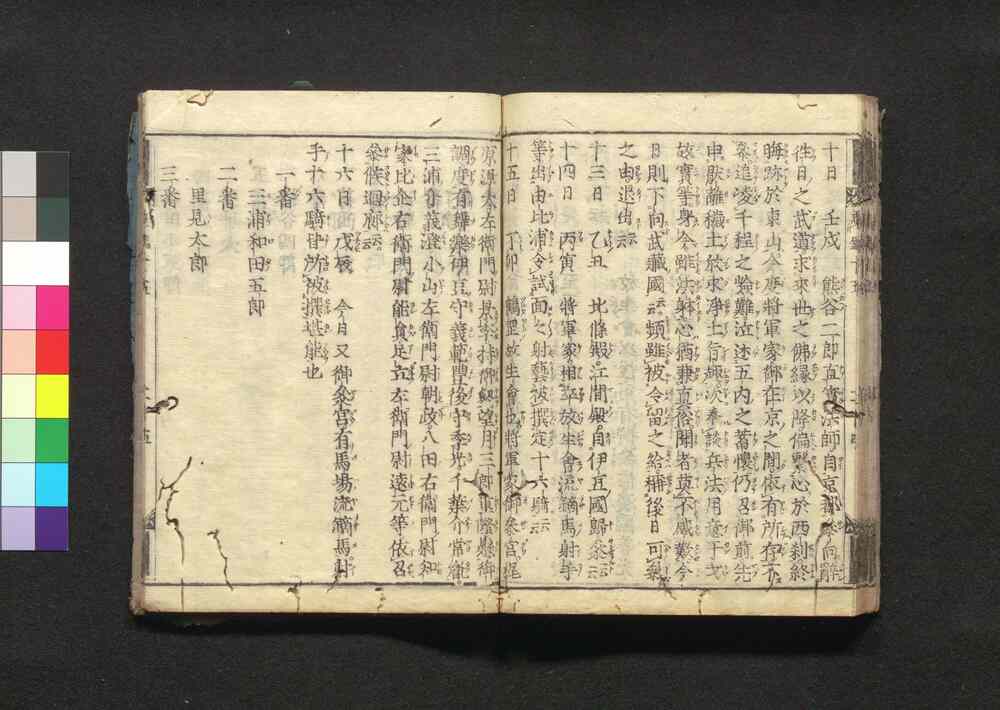 十日　壬戌　熊谷二郎直實法師自京都參向辭
往日之武道求來世之佛縁以降偏繋心於西刹終
晦跡於東山今度將軍家御在京之間依有所存不
參追凌千程之嶮難泣述五内之蓄懷仍召御前先
申厭離穢土欣求淨土旨趣次奉談兵法用意干戈
故實等身今雖法躰心猶兼眞俗聞者莫不感歎今
日則下向武藏國云云頻雖被令留之給稱後日可參
之由退出云云
十三日　乙丑　北條殿江間殿自伊豆國歸參云云
十四日　丙寅　將軍家相率放生會流鏑馬射手
等出由比浦令試面之射藝被撰定十六騎云云
十五日　丁卯　鶴岡放生會也將軍家御參宮
源源太左衛門尉景季持御劔望月三郎重隆懸御
調度有舞樂伊豆守義範豐後守季光千葉介常胤
三浦介義澄小山左衛門尉朝政八田右衛門尉知
家比企右衛門尉能員足立左衛門尉遠元等依召
參候迴廊云云
十六日　戊辰　今日又御參宮有馬塲流鏑馬射
手十六騎皆所被撰堪能也
一番
三浦和田五郎
二番
里見太郎
三番